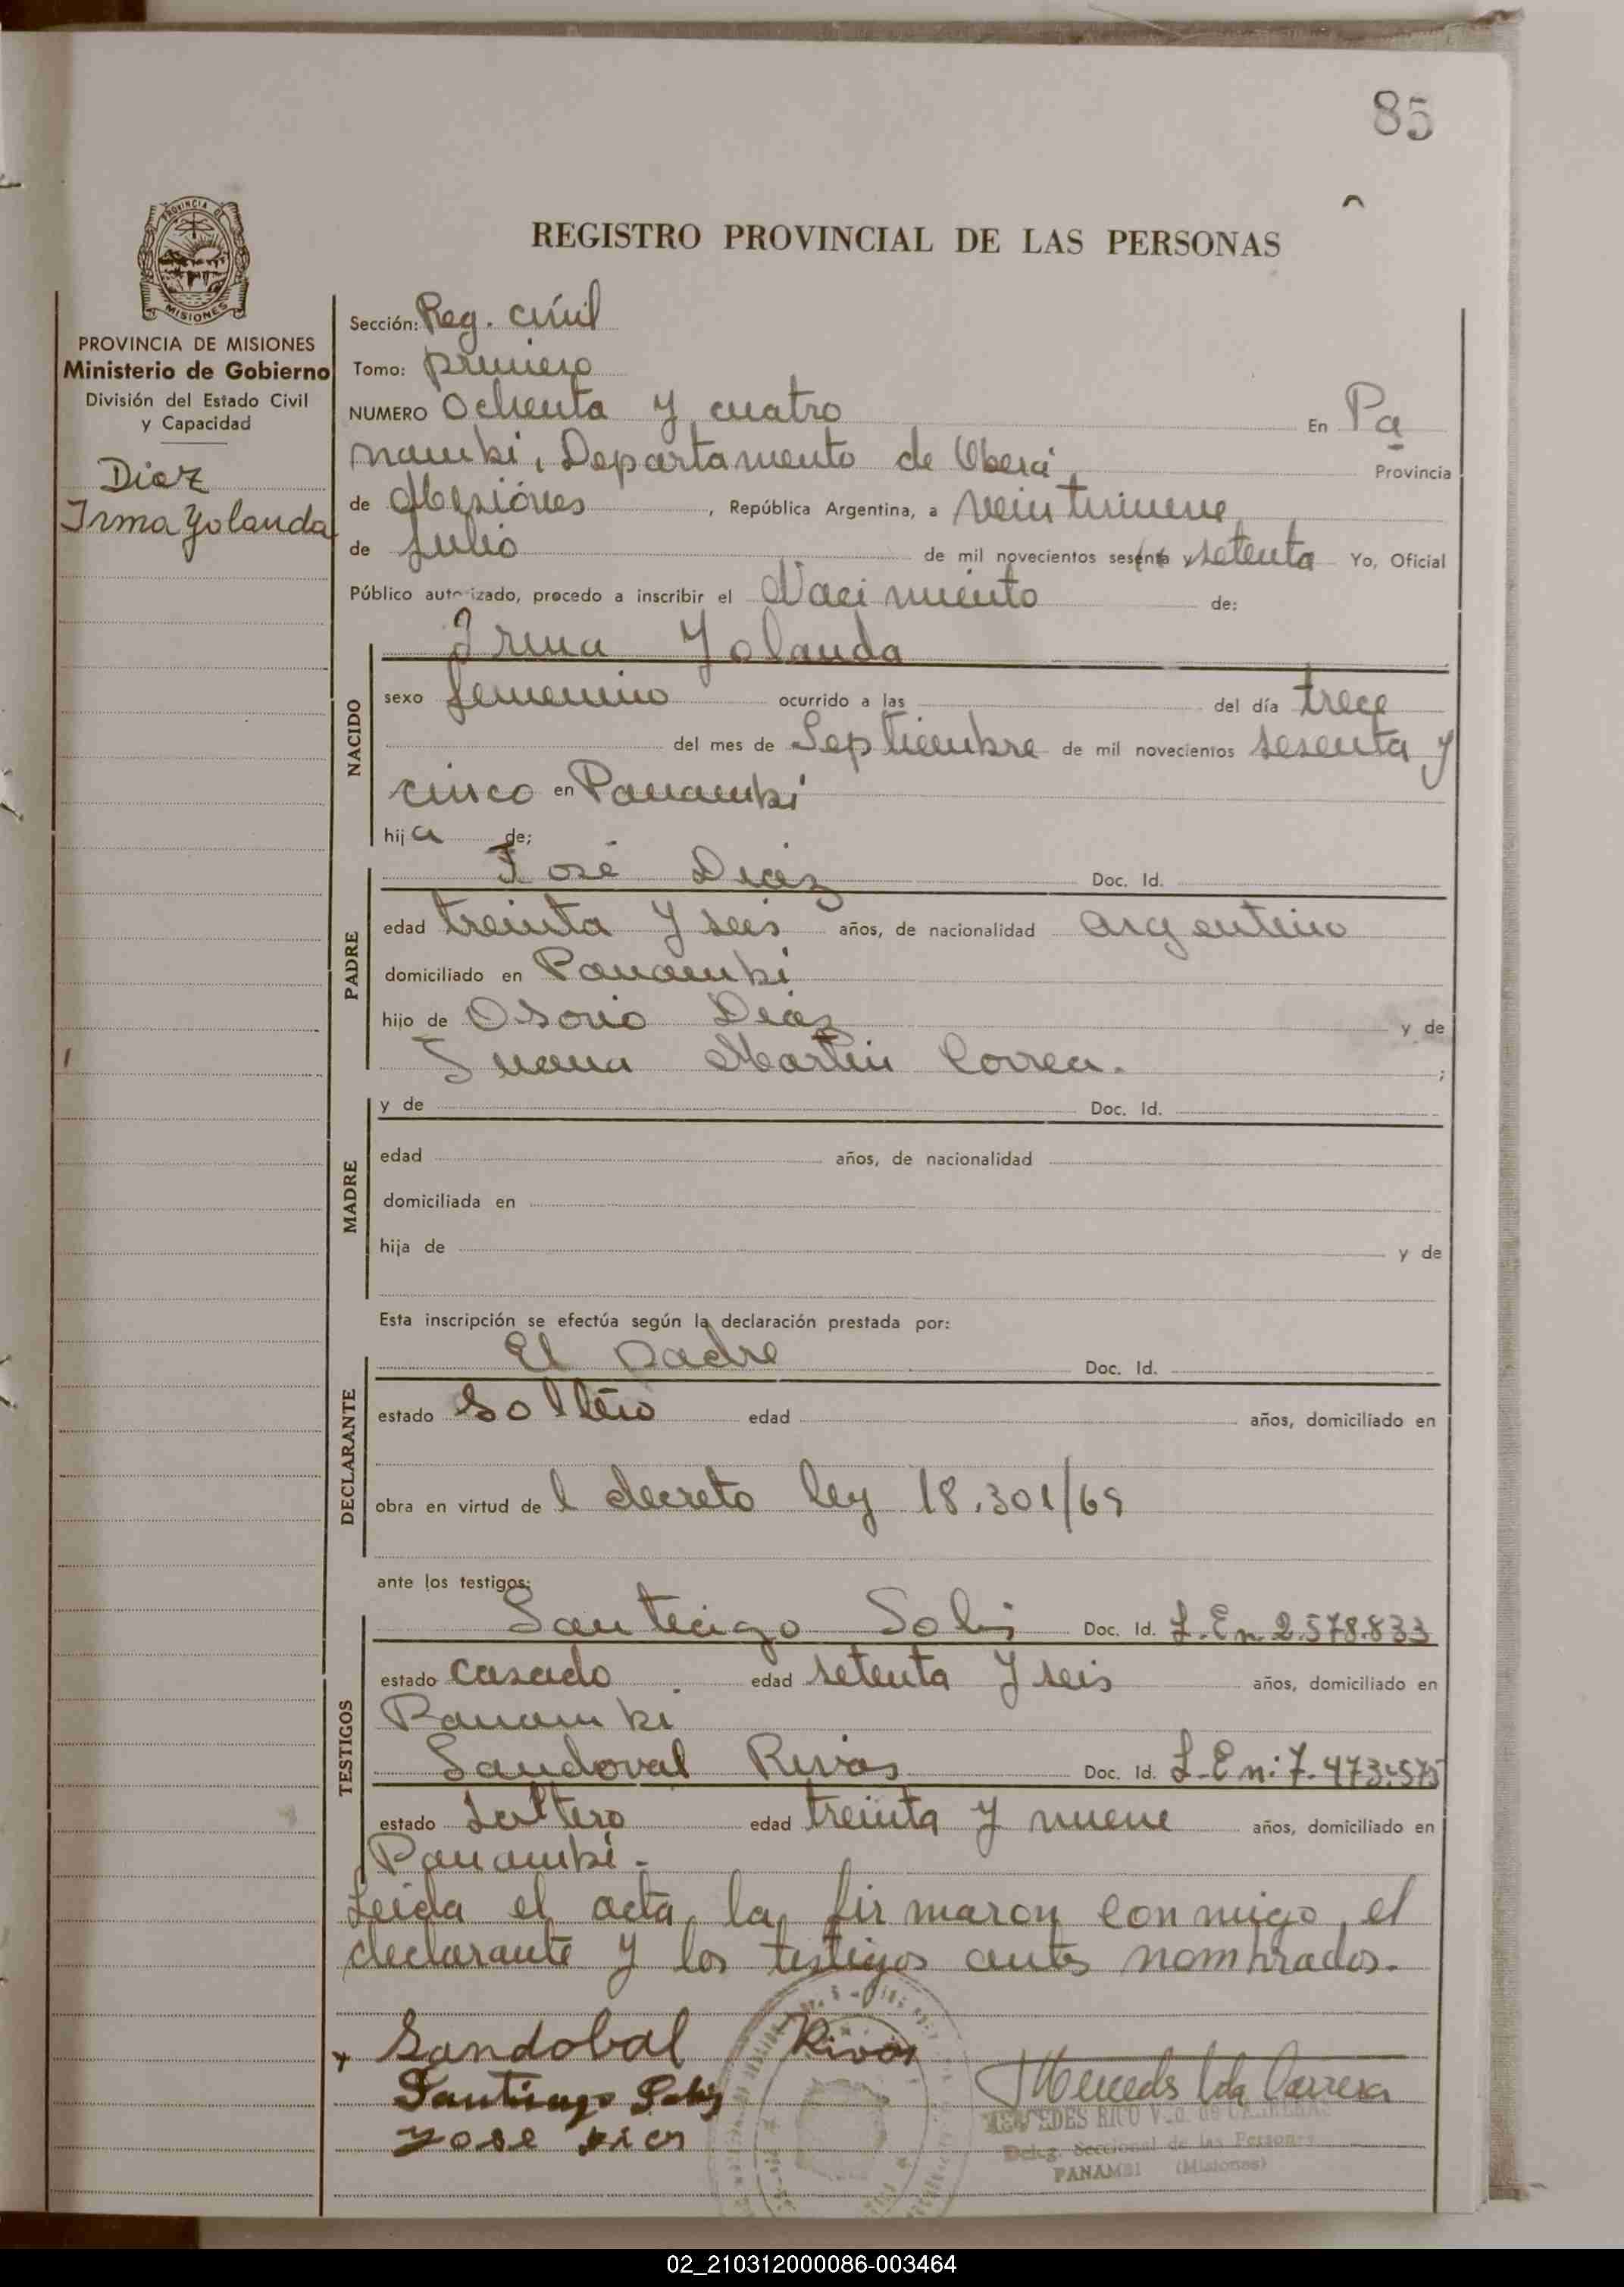 85
PROVINCIA DE
MISIONES
REGISTRO PROVINCIAL DE LAS PERSONAS
PROVINCIA DE MISIONES
Ministerio de Gobierno
División del Estado Civil
y Capacidad
Diaz
Irma Yolanda
Sección: Reg. civil
Tomo: primero
NUMERO Ochenta y cuatro En Pa
nambi, Departamento de Oberá, Provincia
de Misiónes, República Argentina, a veintinueve
de Julio de mil novecientos sesenta y setenta Yo, Oficial
Público autorizado, procedo a inscribir el Nacimiento de:
NACIDO
Irma Yolanda
sexo femenino ocurrido a las del día trece
del mes de Septiembre de mil novecientos sesenta y
cinco en Panambi
hija de;
PADRE
José Diáz Doc. Id.
edad treinta y seis años, de nacionalidad argentino
domiciliado en Panambi
hijo de Osorio Diáz y de
Juana Martin Correa. ;
MADRE
y de Doc. Id.
edad años, de nacionalidad
domiciliada en
hija de y de
Esta inscripción se efectúa según la declaración prestada por:
DECLARANTE
El padre Doc. Id.
estado Soltero edad años, domiciliado en
obra en virtud de l decreto ley 18.301/69
ante los testigos:
TESTIGOS
Santiago Solis Doc. Id. L.En 2.578.833
estado casado edad setenta y seis años, domiciliado en
Panambi
Sandoval Rivas Doc. Id. L.En: 7.473.575
estado Soltero edad treinta y nueve años, domiciliado en
Panambi.
Leida el acta, la firmaron conmigo, el
declarante y los testigos antes nombrados.
Sandobal Rivas
Santiago Solis
Jose Dies
MERCEDES RICO V.d. de CARRERAS
Deleg. Seccional de las Personas
PANAMBI (Misiones)
02_210312000086-003464